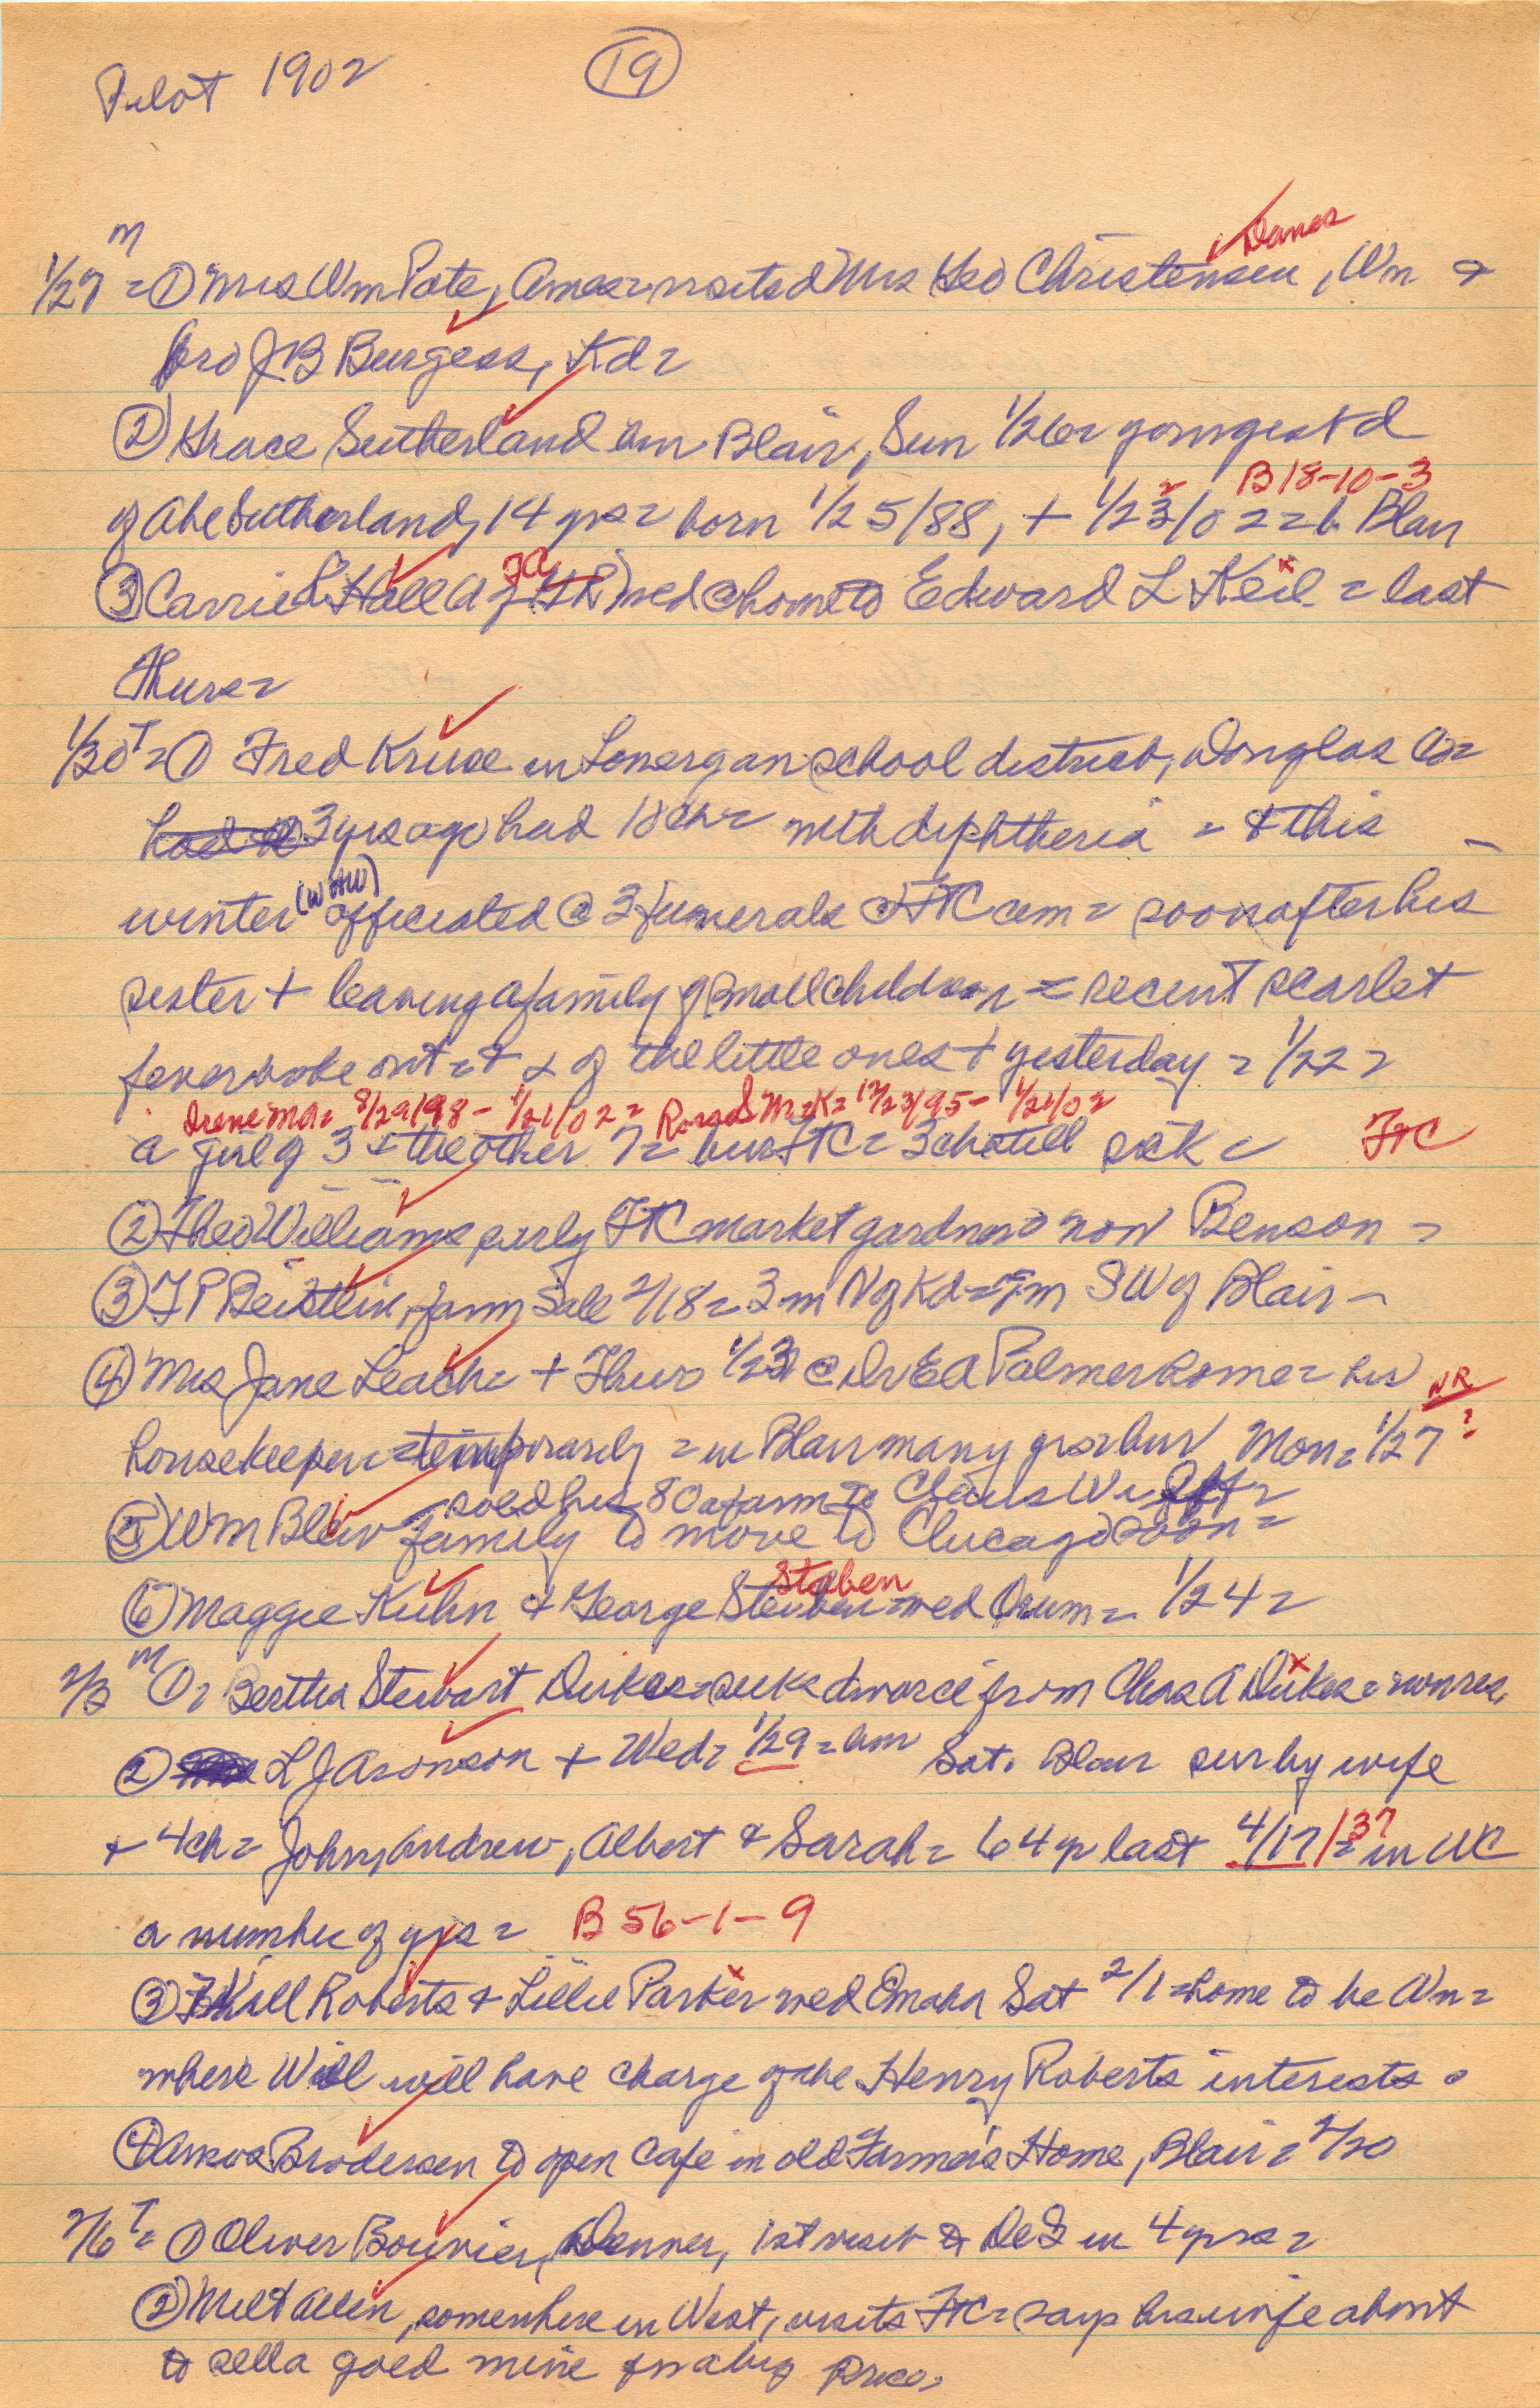 Pilot 1902 19
M Danes
1/27 = ① Mrs Wm Pate, Ames = visited Mrs Geo Christensen, Wn &
bro J B Burgess, Kd =
② Grace Sutherland bur Blair, Sun 1/26 = youngest d
B 18-10-3
of Abe Sutherland, 14 yrs = born 1/25/88, + 1/23/02 = b Blair
③ Carrie L Hall (d of wed @ home to Edward L Keil = last
Thurs =
1/30 T = ① Fred Kruse in Lonergan school district, Douglas Co =
3 yrs ago had ch = with diphtheria = & this
winter (WHW) officiated @ 3 funerals @ FTC cem = soon after his
sister + leaving a family of small children = recent scarlet
fever broke out = & 2 of the little ones + yesterday = 1/22 =
Irene MA = 8/29/98 - 1/21/02 = M = K = 12/23/95 - 1/21/02
a girl of 3 & the other 7 = bur FTC = 3 ch still sick = FTC
② Theo Williams early FTC market gardner = now Benson =
③ F P Beistlin, farm sale 2/18 = 3 m N of Kd = 7 m SW of Blair =
④ Mrs Jane Leach = + Thurs 1/23 @ Dr E A Palmer home = his NR
housekeeper = temporarily = in Blair many yrs = bur Mon = 1/27 ?
sold his 80 a farm to Claus
⑤ Wm Blew family to move to Chicago soon =
Staben
⑥ Maggie Kuhn & George wed Crum = 1/24 =
2/3 M ① = Bertha Stewart Dukes = seeks divorce from Chas A Dukes = nonres.
② L J Aronson + Wed = 1/29 = bur Sat. Blair sur by wife
+ 4 ch = John, Andrew, Albert & Sarah = 64 yr last 4/17/37 = in WC
a number of yrs = B 56-1-9
③ Will Roberts & Lillie Parker wed Omaha Sat 2/1 = home to be Wn =
where Will will have charge of the Henry Roberts interests =
④ Brodersen to open Cafe in old Farmers Home, Blair = 2/20
2/6 T = ① Oliver Bouvier, Denver, 1st visit to DeS in 4 yrs =
② Milt Allen, somewhere in West, visits FTC = says his wife about
to sell a goed mine for a big price.